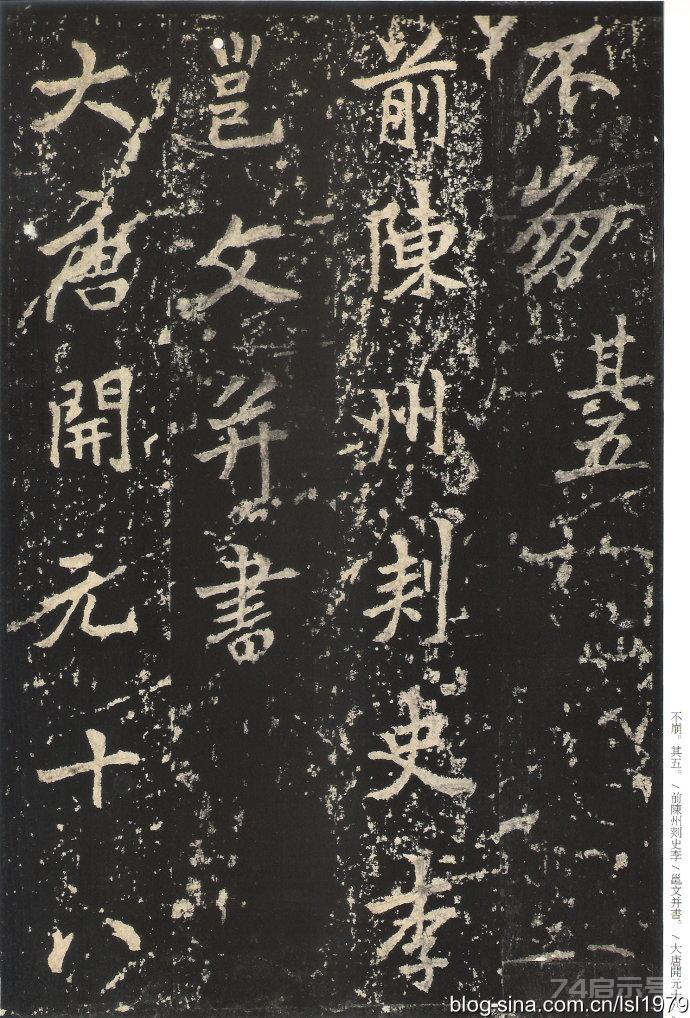 不崩其五
前陳州刾史李
邕文并書
大唐開元十八
不崩。其五。/前陳州刻史李/邕文并書。/大唐開元十
74启示号
blog-sina.com.cn/lsl1979